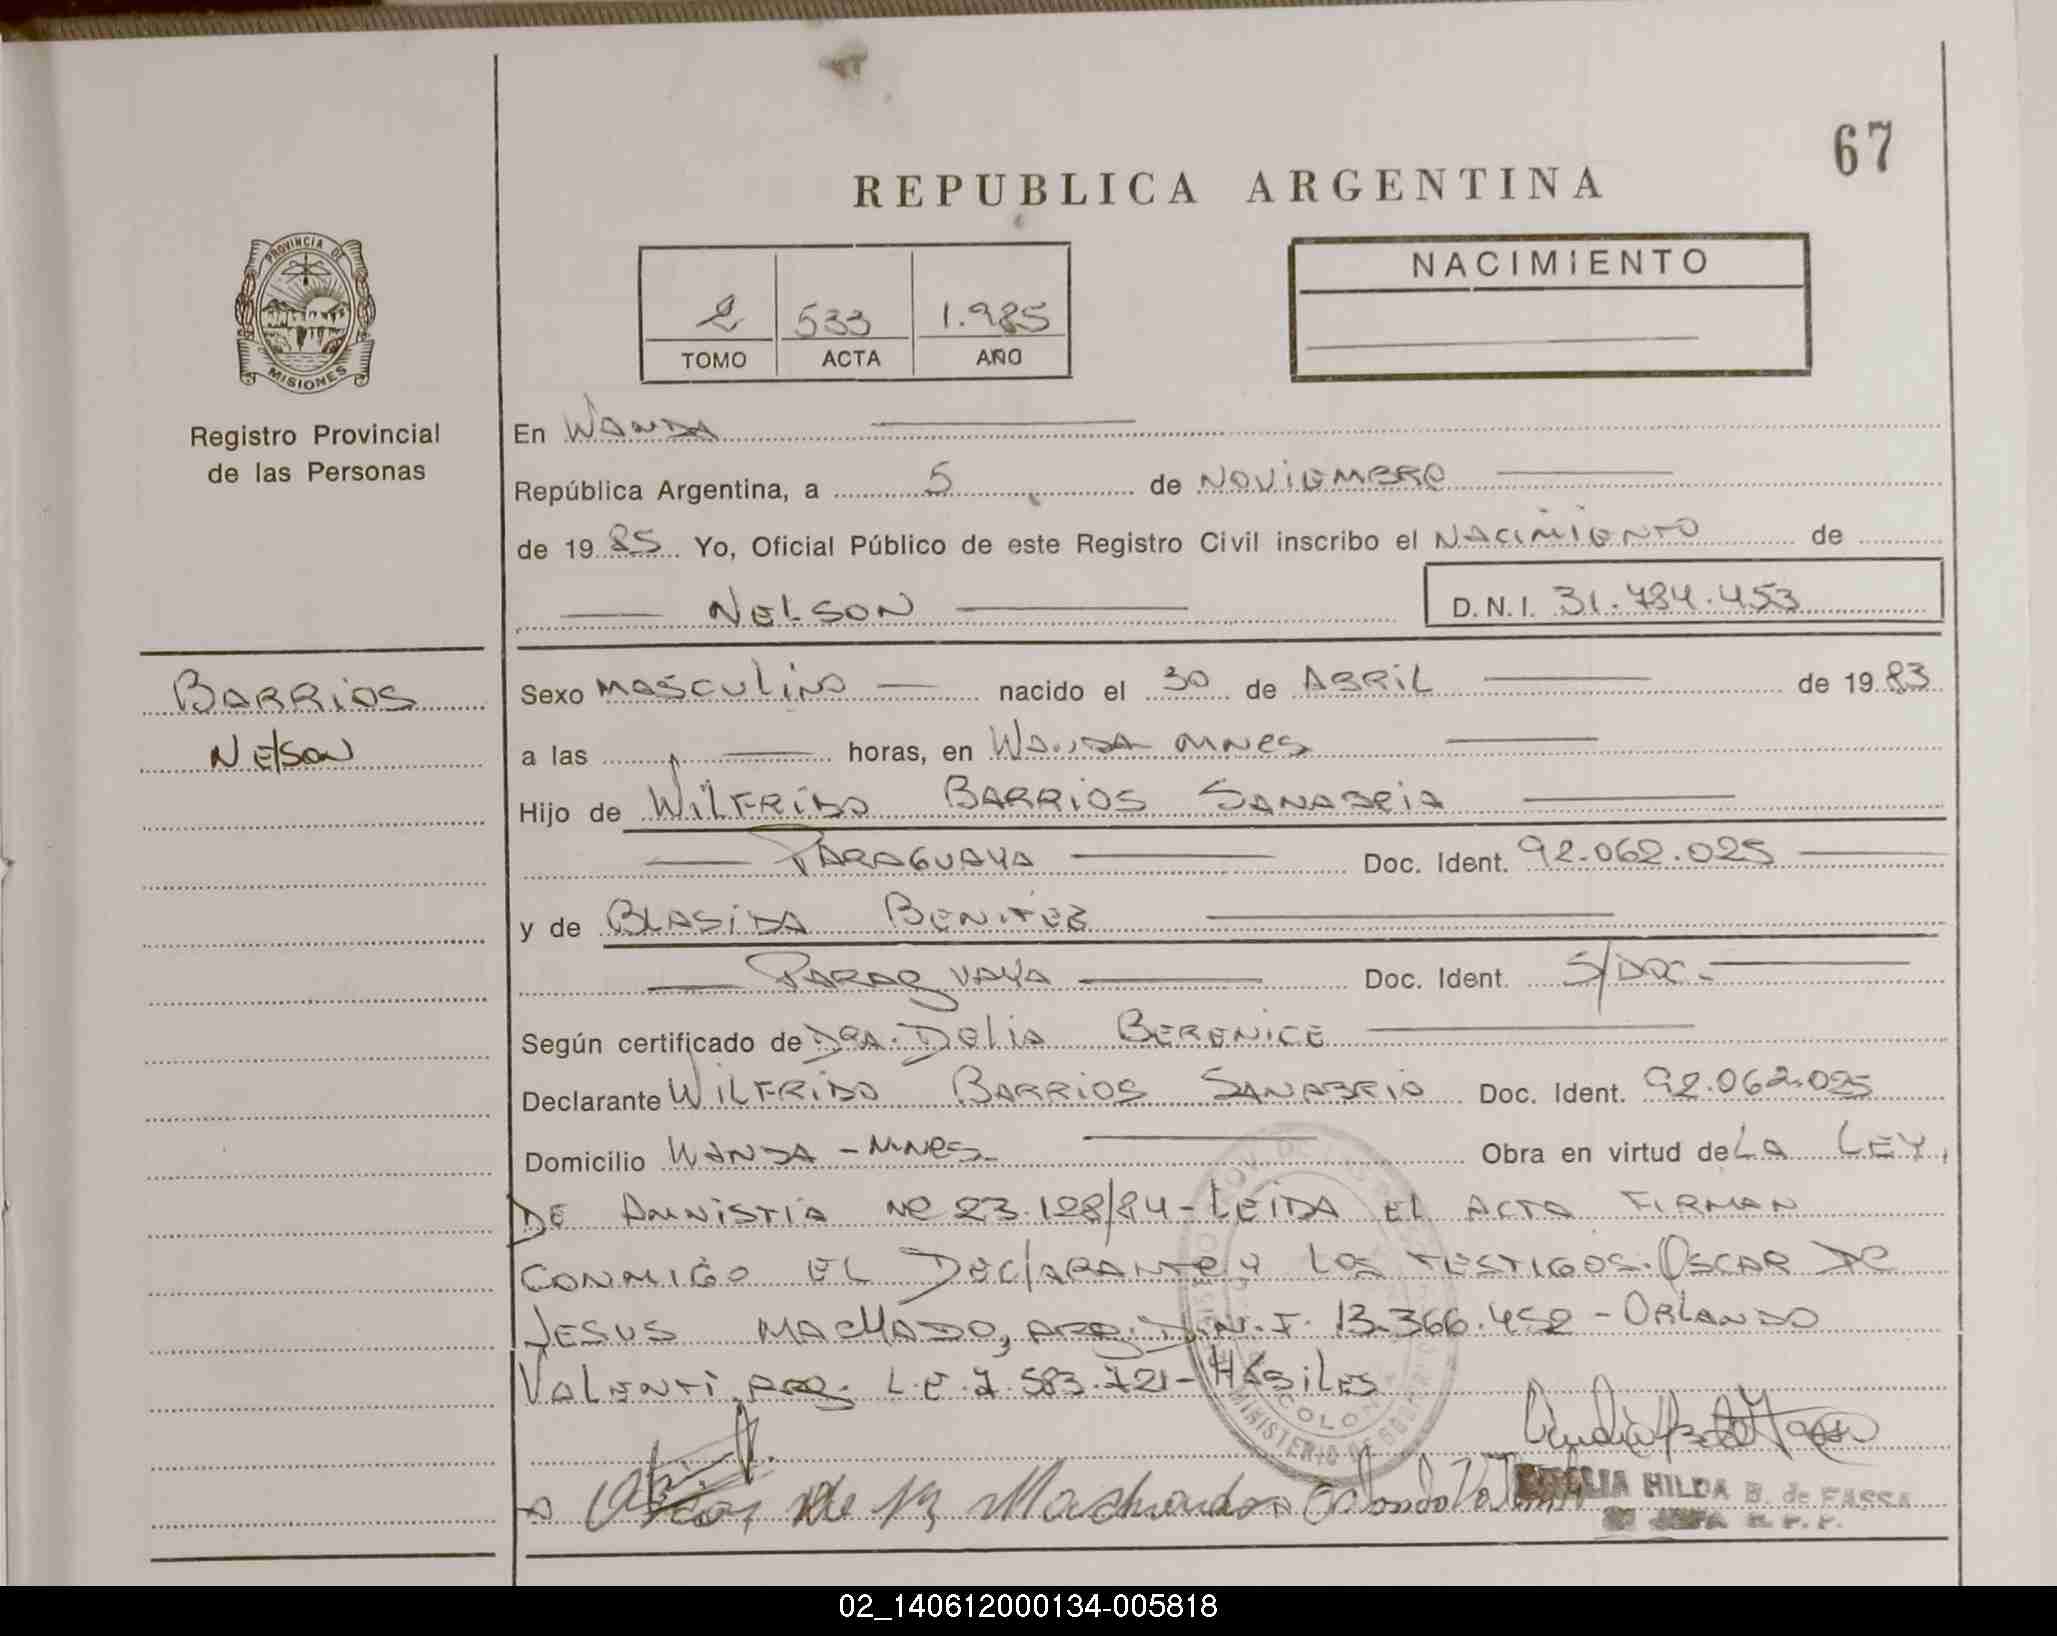 67
REPUBLICA ARGENTINA
PROVINCIA DE
MISIONES
Registro Provincial
de las Personas
2 533 1.985
TOMO ACTA AÑO
NACIMIENTO
En WANDA
República Argentina, a 5 de NOVIEMBRE
de 1985 Yo, Oficial Público de este Registro Civil inscribo el NACIMIENTO de
NELSON D.N.I. 31.784.453
BARRIOS
NELSON
Sexo MASCULINO nacido el 30 de ABRIL de 1983
a las horas, en WANDA MNES
Hijo de WILFRIDO BARRIOS SANABRIA
PARAGUAYA Doc. Ident. 92.062.025
y de BLASIDA BENITEZ
PARAGUAYA Doc. Ident. S/DOC.
Según certificado de DRA. DELIA BERENICE
Declarante WILFRIDO BARRIOS SANABRIA Doc. Ident. 92.062.025
Domicilio WANDA - MNES. Obra en virtud de LA LEY,
DE AMNISTIA Nº 23.128/84 - LEIDA EL ACTA FIRMAN
CONMIGO EL DECLARANTE y LOS TESTIGOS. OSCAR DE
JESUS MACHADO, ARG. D.N.I. 13.366.452 - ORLANDO
VALENTI, ARG. L.E. 7.583.721 - HÁBILES
Oscar de J. Machado Orlando Valenti
HILDA B. de FASSA
02_140612000134-005818